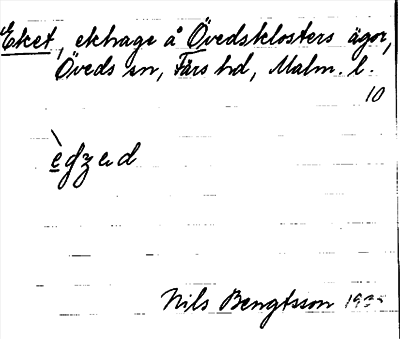 Eket, ekhage å Övedsklosters ägor,
Öveds sn, Färs hd, Malm. l.
10
Nils Bengtsson